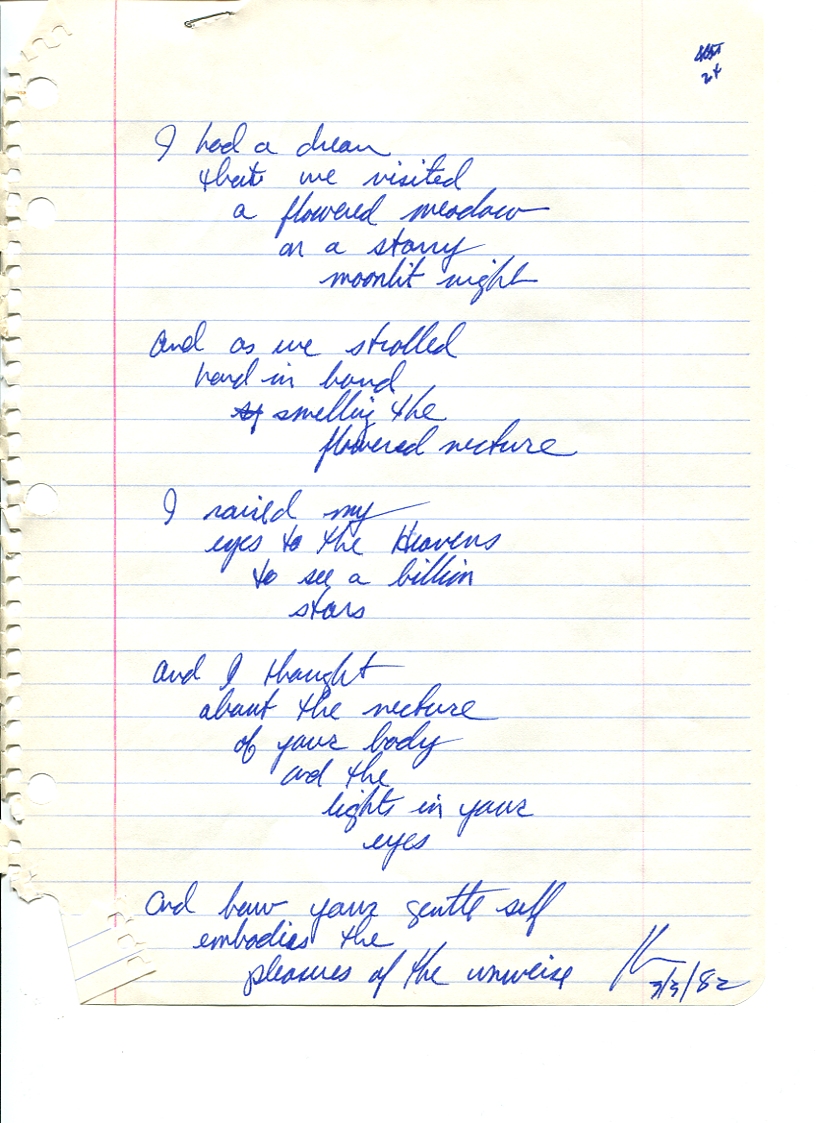 24
I had a dream
that we visited
a flowered meadow
on a starry
moonlit night
And as we strolled
hand in hand
smelling the
flowered necture
I raised my
eyes to the Heavens
to see a billion
stars
And I thought
about the necture
of your body
and the
lights in your
eyes
And how your gentle self
embodies the
pleasures of the universe
3/3/82